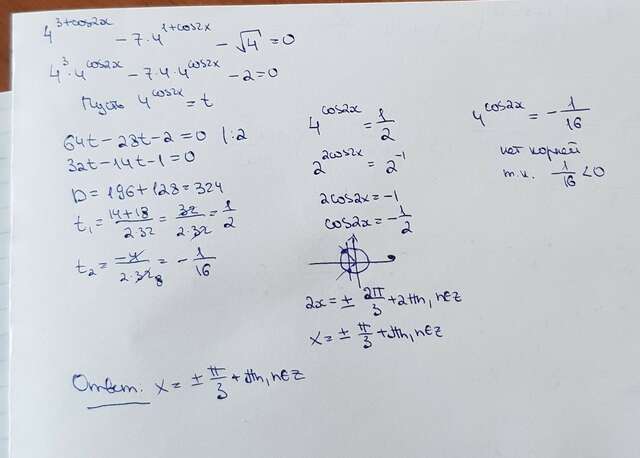 4^{3+cos2x} - 7·4^{1+cos2x} - √4 = 0
4^3·4^{cos2x} - 7·4·4^{cos2x} - 2 = 0
Пусть 4^{cos2x} = t
64t - 28t - 2 = 0 |:2
32t - 14t - 1 = 0
D = 196 + 128 = 324
t₁ = \frac{14+18}{2·32} = \frac{32}{2·32} = \frac{1}{2}
t₂ = \frac{-4}{2·32 8} = -\frac{1}{16}
4^{cos2x} = \frac{1}{2}
2^{2cos2x} = 2^{-1}
2cos2x = -1
cos2x = -\frac{1}{2}
2x = ± \frac{2π}{3} + 2πn, n∈z
x = ± \frac{π}{3} + πn, n∈z
4^{cos2x} = -\frac{1}{16}
нет корней
т.к. \frac{1}{16} < 0
Ответ: x = ± \frac{π}{3} + πn, n∈z